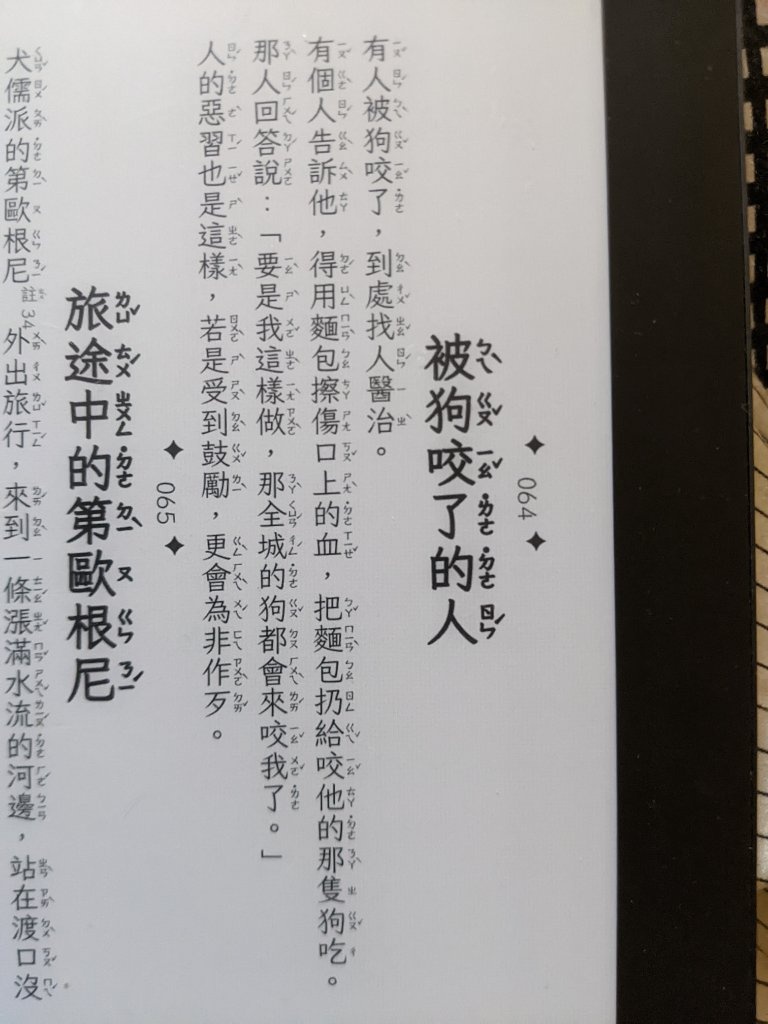 064
被狗咬了的人
有人被狗咬了，到處找人醫治。
有個人告訴他，得用麵包擦傷口上的血，把麵包扔給咬他的那隻狗吃。
那人回答說：「要是我這樣做，那全城的狗都會來咬我了。」
人的惡習也是這樣，若是受到鼓勵，更會為非作歹。
065
旅途中的第歐根尼
犬儒派的第歐根尼註34外出旅行，來到一條漲滿水流的河邊，站在渡口沒